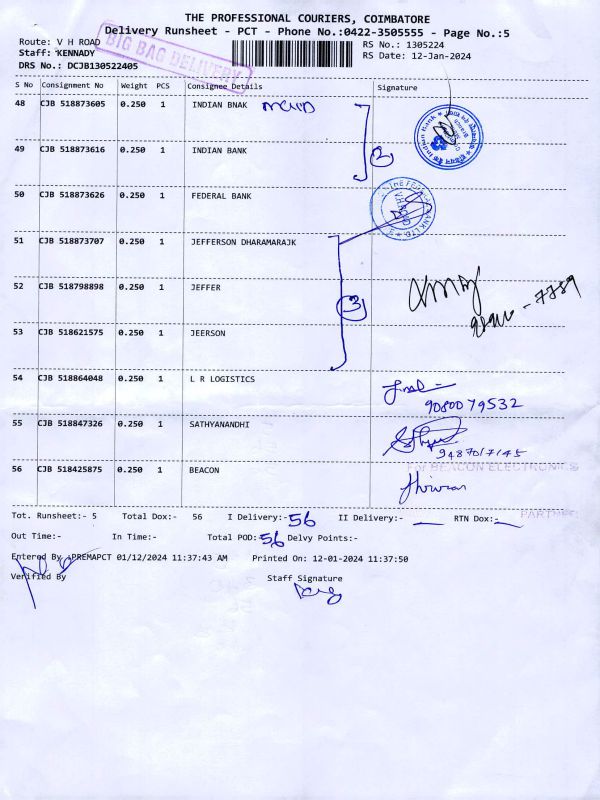 THE PROFESSIONAL COURIERS, COIMBATORE
Delivery Runsheet - PCT - Phone No.:0422-3505555 - Page No.:5
Route: V H ROAD
RS No.: 1305224
Staff: KENNADY
RS Date: 12-Jan-2024
DRS No.: DCJB130522405
BIG BAG DELIVERY
S No Consignment No Weight PCS Consignee Details Signature
48 CJB 518873605 0.250 1 INDIAN BNAK
49 CJB 518873616 0.250 1 INDIAN BANK
2
50 CJB 518873626 0.250 1 FEDERAL BANK
51 CJB 518873707 0.250 1 JEFFERSON DHARAMARAJK
52 CJB 518798898 0.250 1 JEFFER
3
53 CJB 518621575 0.250 1 JEERSON
54 CJB 518864048 0.250 1 L R LOGISTICS
9080079532
55 CJB 518847326 0.250 1 SATHYANANDHI
9487017145
For BEACON ELECTRONICS
56 CJB 518425875 0.250 1 BEACON
PARTNER
Tot. Runsheet:- 5 Total Dox:- 56 I Delivery:- 56 II Delivery:- RTN Dox:-
Out Time:- In Time:- Total POD: 56 Delvy Points:-
Entered By PREMAPCT 01/12/2024 11:37:43 AM Printed On: 12-01-2024 11:37:50
Verified By Staff Signature